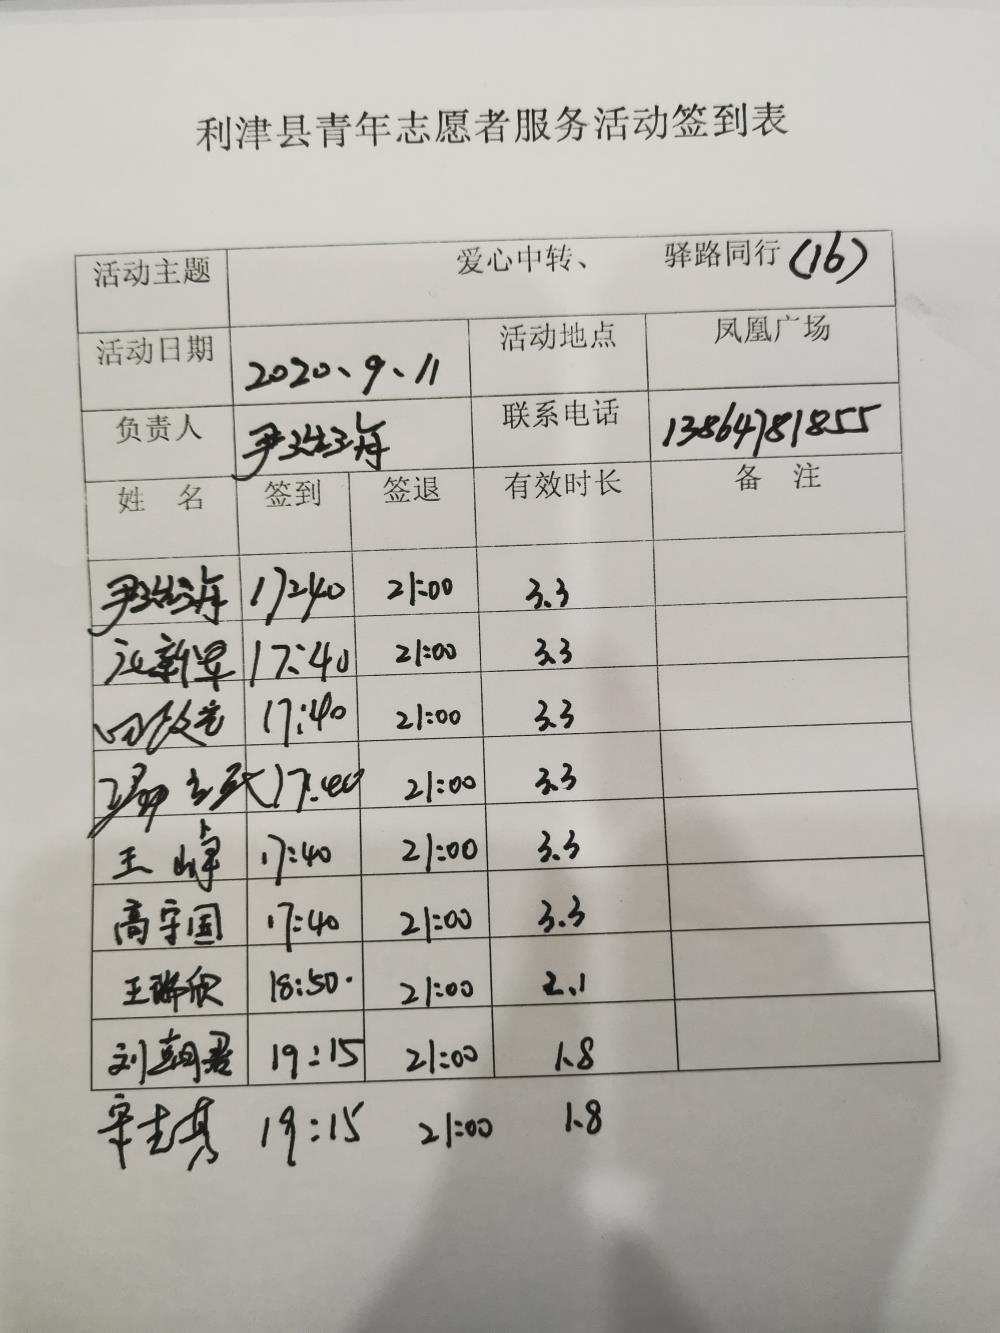 利津县青年志愿者服务活动签到表
活动主题 爱心中转、 驿路同行(16)
活动日期 2020、9、11 活动地点 凤凰广场
负责人 尹 联系电话 13864781855
姓 名 签到 签退 有效时长 备 注
尹 17:40 21:00 3.3
新军 17:40 21:00 3.3
17:40 21:00 3.3
17:40 21:00 3.3
王峰 17:40 21:00 3.3
高守国 17:40 21:00 3.3
王瑞欣 18:50 21:00 2.1
刘朝 19:15 21:00 1.8
19:15 21:00 1.8